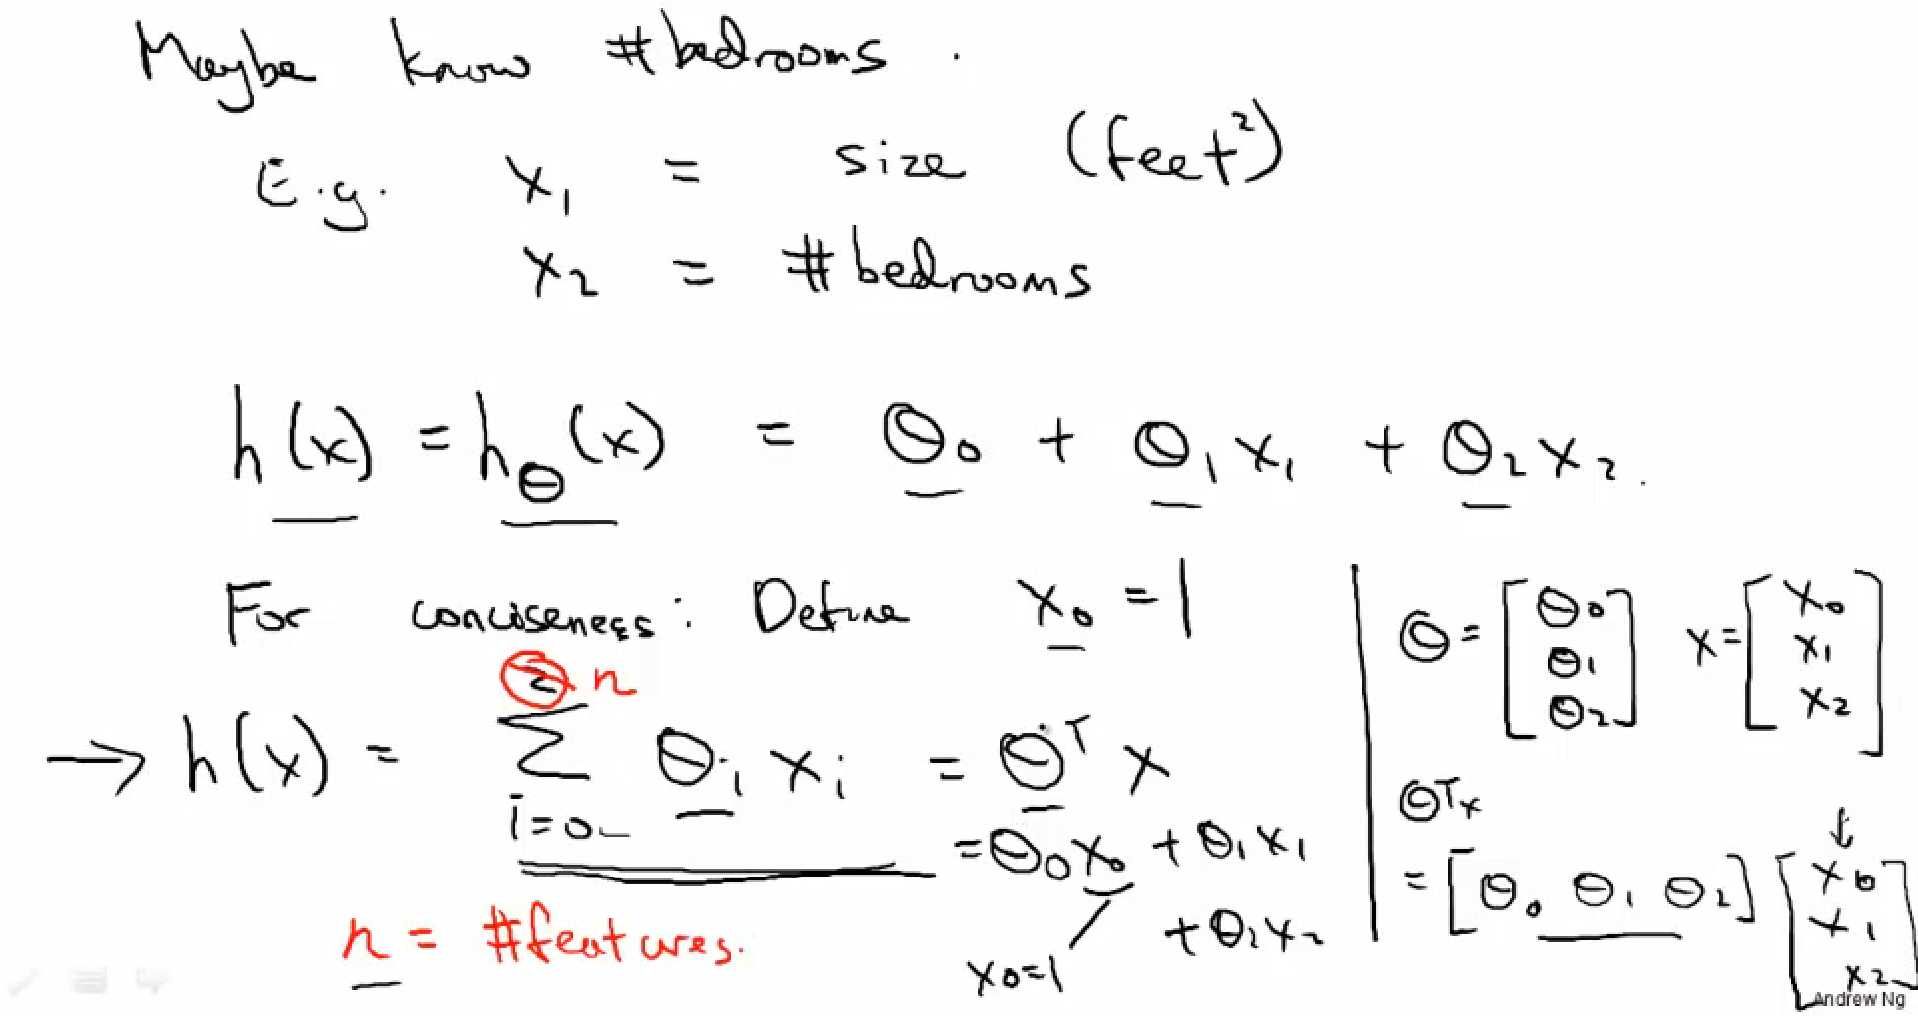 Maybe know #bedrooms.
E.g. x₁ = size (feet²)
x₂ = #bedrooms
h(x) = h_θ(x) = θ₀ + θ₁x₁ + θ₂x₂.
For conciseness: Define x₀ = 1
2 n
→ h(x) = Σ θᵢ xᵢ = θᵀx
i=0
= θ₀x₀ + θ₁x₁
+ θ₂x₂
x₀=1
n = #features.
θ = [θ₀ θ₁ θ₂] x = [x₀ x₁ x₂]
θᵀx
= [θ₀ θ₁ θ₂] [x₀ x₁ x₂]
Andrew Ng